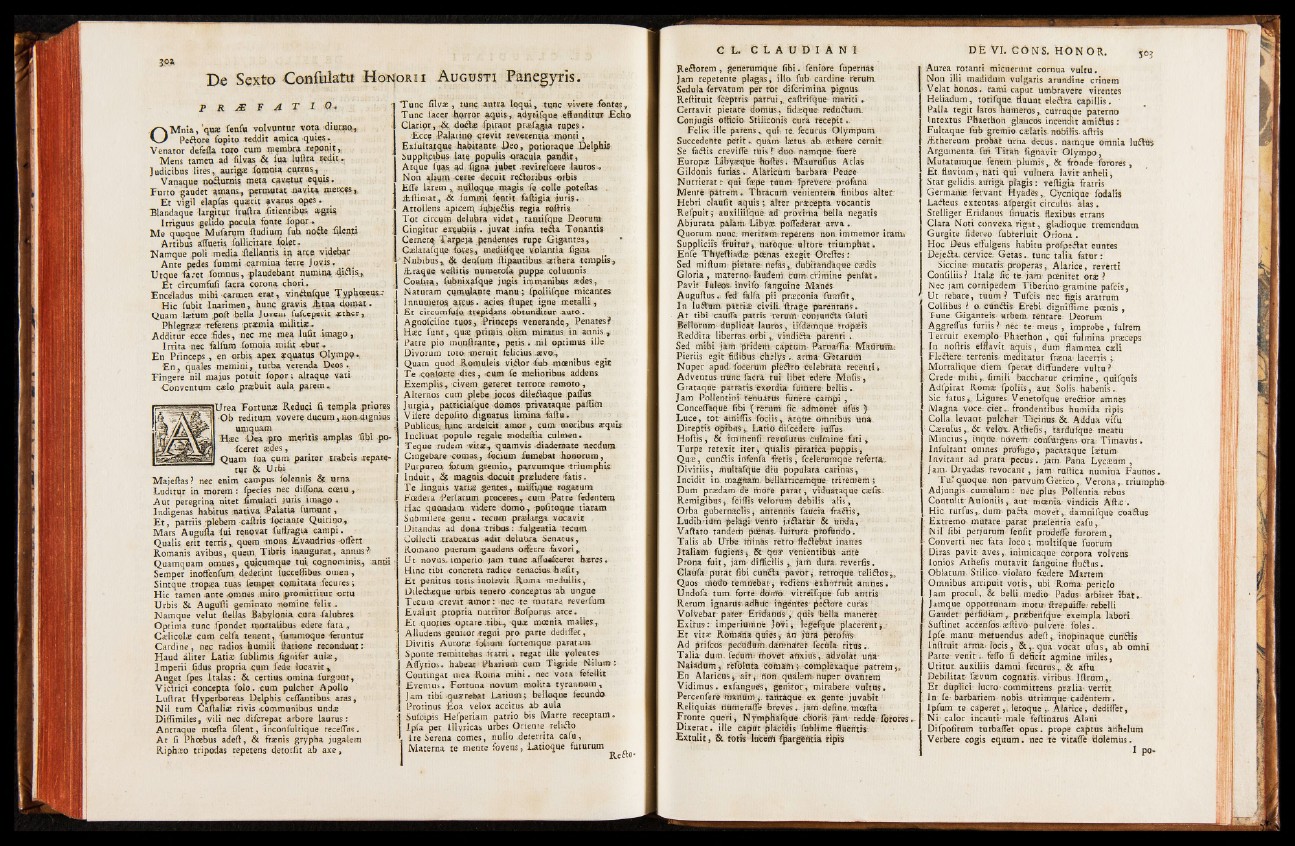 302
De Sexto Conſulatu HONORII AUGUSTI Panegyris.
PRÆFATIO.
OMnia, quæ ſenſu volvuntur vota diurno,
Pectore ſopito reddit amica quies.
Venator defeſſa toro cum membra reponit,
Mens tamen ad ſilvas & ſua luſtra redit.
Judicibus lites, aurigæ ſomnia currus,
Vanaque nocturnis meta cavetur equis.
Furto gaudet amans, permutat navita merces,
Et vigil elapſas quærit avarus opes.
Blandaque largitur fruſtra ſitientibus ægris
Irriguus gelido pocula fonte ſopor.
Me quoque Muſarum ſtudium ſub nocte ſilenti
Artibus aſſuetis ſollicitare ſolet.
Namque poli media ſtellantis in arce videbar
Ante pedes ſummi carmina ferre Jovis.
Utque favet ſomnus, plaudebant numina dictis,
Et circumfuſi ſacra corona chori.
Enceladus mihi carmen erat, vinctuſque Typhœeus:
Hic ſubit Inarimen, hunc gravis Ætna domat.
Quam lætum poſt bella Jovem ſuſceperit æther,
Phlegrææ referens præmia militiæ.
Additur ecce fides, nec me mea luſit imago,
Irrita nec falſum ſomnia miſit ebur.
En Princeps, en orbis apex æquatus Olympo.
En, quales memini, turba verenda Deos.
Fingere nil majus potuit ſopor: altaque vati
Conventum cælo præbuit aula parem.
AUrea Fortunæ Reduci ſi templa priores
Ob reditum vovere ducum, non dignius
umquam
Hæc Dea pro meritis amplas ſibi po-
ſceret ædes,
Quam ſua cum pariter trabeis repare-
tur & Urbi
Majeſtas? nec enim campus ſolennis & urna
Luditur in morem: ſpecies nec diſſona cœtu,
Aut peregrina nitet ſimulati juris imago.
Indigenas habitus nativa Palatia ſumunt,
Et, patriis plebem caſtris ſociante Quirino,
Mars Auguſta ſui renovat ſuffragia campi.
Qualis erit terris, quem mons Evandrius offert
Romanis avibus, quem Tibris inaugurat, annus?
Quamquam omnes, quicumque tui cognominis, anni
Semper inoffenſum dederint ſucceſſibus omen,
Sintque tropæa tuas ſemper comitata ſecures;
Hic tamen ante omnes miro promittitur ortu
Urbis & Auguſti geminato nomine felix.
Namque velut ſtellas Babylonia cura ſalubres
Optima tunc ſpondet mortalibus edere fata,
Cælicolæ cum celſa tenent, ſummoque feruntur
Cardine, nec radios humili ſtatione recondunt:
Haud aliter Latiæ ſublimis ſignifer aulæ,
Imperii ſidus propria cum ſede locavit,
Auget ſpes Italas: & certius omina ſurgunt,
Victrici concepta ſolo. cum pulcher Apollo
Luſtrat Hyperboreas Delphis ceſſantibus aras,
Nil tum Caſtaliæ rivis communibus undæ
Diſſimiles, vili nec diſcrepat arbore laurus:
Antraque mœſta ſilent, inconſultique receſſus.
At ſi Phœbus adeſt, & frænis grypha jugalem
Riphæo tripodas repetens detorſit ab axe,
Tunc ſilvæ, tunc antra loqui, tunc vivere fontes,
Tunc ſacer horror aquis, adytiſque effunditur Echo
Clarior, & doctæ ſpirant præſagia rupes.
Ecce Palatino crevit reverentia monti,
Exſultatque habitante Deo, potioraque Delphis
Supplicibus late populis oracula pandit,
Atque ſuas ad ſigna jubet revireſcere lauros.
Non alium certe decuit rectoribus orbis
Eſſe larem, nulloque magis ſe colle poteſtas
Æſtimat, & ſummi ſentit faſtigia juris.
Attollens apicem ſubjectis regia roſtris
Tot circum delubra videt, tantiſque Deorum
Cingitur excubiis. juvat infra tecta Tonantis
Cernere Tarpeja pendentes rupe Gigantes,
Cælataſque fores, mediiſque volantia ſigna
Nubibus, & denſum ſtipantibus æthera templis,
Æraque veſtitis numeroſa puppe columnis
Conſita, ſubnixaſque jugis immanibus ædes,
Naturam cumulante manu; ſpoliiſque micantes
Innumeros arcus. acies ſtupet igne metalli,
Et circumfuſo trepidans obtunditur auro.
Agnoſciſne tuos, Princeps venerande, Penates?
Hæc ſunt, quæ primis olim miratus in annis,
Patre pio monſtrante, petis. nil optimus ille
Divorum toto meruit felicius ævo,
Quam quod Romuleis victor ſub mœnibus egit
Te conſorte dies, cum ſe melioribus addens
Exemplis, civem gereret terrore remoto,
Alternos cum plebe jocos dilectaque paſſus
Jurgia, patriciaſque domos privataque paſſim
Viſere depoſito dignatus limina faſtu.
Publicus, hinc ardeſcit amor, cum moribus æquis
Inclinat populo regale modeſtia culmen.
Teque rudem vitæ, quamvis diademate necdum
Cingebare comas, ſocium ſumebat honorum,
Purpureo fotum gremio, parvumque triumphis
Induit, & magnis docuit præludere fatis.
Te linguis variæ gentes, miſſique rogatum
Fœdera Perſarum proceres, cum Patre ſedentem
Hac quondam videre domo, poſitoque tiaram
Submiſere genu. tecum prælarga vocavit
Ditandas ad dona tribus: fulgentia tecum
Collecti trabeatus adit delubra Senatus,
Romano puerum gaudens offerre favori,
Ut novus imperio jam tunc aſſueſceret hæres.
Hinc tibi concreta radice tenacius hæſit,
Et penitus totis inolevit Roma medullis,
Dilectæque urbis tenero conceptus ab ungue
Tecum crevit amor: nec te mutare reverſum
Evaluit propria nutritor Boſporus arce.
Et quoties optare tibi, quæ mœnia malles,
Alludens genitor regni pro parte dediſſet,
Divitis Auroræ ſolium ſortemque paratam
Sponte remittebas fratri. regat ille volentes
Aſſyrios. habeat Pharium cum Tigride Nilum:
Contingat mea Roma mihi. nec vota fefellit
Eventus. Fortuna novum molita tyrannum,
Jam tibi quærebat Latium; belloque ſecundo
Protinus Eoa velox accitus ab aula
Suſcipis Heſperiam patrio bis Marte receptam.
Ipſa per Illyricas urbes Oriente relicto
Ire Serena comes, nullo deterrita caſu,
Materna te mente fovens, Latioque futurum
Recto-
CL. CLAUDIANI
Rectorem, generumque ſibi. ſeniore ſupernas
Jam repetente plagas, illo ſub cardine rerum
Sedula ſervatum per tot diſcrimina pignus
Reſtituit ſceptris patrui, caſtriſque mariti.
Certavit pietate domus. fidæque reductum.
Conjugis officio Stiliconis cura recepit.
Felix ille parens, qui te ſecurus Olympum
Succedente petit. quam lætus ab æthere cernit
Se factis creviſſe tuis! duo namque fuere
Europæ Libyæque hoſtes. Mauruſius Atlas
Gildonis furias. Alaricum barbara Peuce
Nutrierat: qui ſæpe tuum ſprevere profana
Mente patrem. Thracum venientem finibus alter
Hebri clauſit aquis; alter præcepta vocantis
Reſpuit; auxiliiſque ad proxima bella negatis
Abjurata palam Libyæ poſſederat arva.
Quorum nunc meritam repetens non immemor iram,
Suppliciis fruitur, natoque ultore triumphat.
Enſe Thyeſtiadæ pœnas exegit Oreſtes:
Sed miſtum pietate nefas, dubitandaque cædis
Gloria, materno laudem cum crimine penſat.
Pavit Iuleos inviſo ſanguine Manes
Auguſtus. ſed falſa pii præconia ſumſit,
In luctum patriæ civili ſtrage parentans.
At tibi cauſſa patris rerum conjuncta ſaluti
Bellorum duplicat lauros, iiſdemque tropæis
Reddita libertas orbi, vindicta parenti.
Sed mihi jam pridem captum Parnaſſia Maurum.
Pieriis egit fidibus chelys. arma Getarum
Nuper apud ſocerum plectro celebrata recenti.
Adventus nunc ſacra tui libet edere Muſis,
Grataque patratis exordia ſumere bellis.
Jam Pollentini tenuatus funere campi,
Conceſſaque ſibi (rerum ſic admonet uſus)
Luce, tot amiſſis ſociis, atque omnibus una
Direptis opibus, Latio diſcedere juſſus
Hoſtis, & immenſi revoluturus culmine fati,
Turpe retexit iter, qualis piratica puppis,
Quæ, cunctis infenſa fretis, ſcelerumque referta
Divitiis, multaſque diu populata carinas,
Incidit in magnam bellatricemque triremem;
Dum prædam de more parat, viduataque cæſis
Remigibus, ſciſſis velorum debilis alis,
Orba gubernaclis, antennis ſaucia fractis,
Ludibrium pelagi vento jactatur & unda,
Vaſtato tandem pœnas luitura profundo.
Talis ab Urbe minas retro flectebat inanes
Italiam fugiens, & quæ venientibus ante
Prona fuit, jam difficilis, jam dura reverſis.
Clauſa putat ſibi cuncta pavor, retroque relictos,
Quos modo temnebat, rediens exhorruit amnes.
Undoſa tum forte domo vitreiſque ſub antris
Rerum ignarus adhuc ingentes pectore curas
Volvebat pater Eridanus, quis bella maneret
Exitus: imperiumne Jovi, legeſque placerent,
Et vitæ Romana quies, an jura peroſus
Ad priſcos pecudum damnaret ſecula ritus.
Talia dum ſecum movet anxius, advolat una
Naiadum, reſoluta comam; complexaque patrem,
En Alaricus, ait, non qualem nuper ovantem
Vidimus. exſangues, genitor, mirabere vultus.
Percenſere manum, tantaque ex gente juvabit
Reliquias numeraſſe breves. jam deſine mœſta
Fronte queri, Nymphaſque choris jam redde ſorores.
Dixerat. ille caput placidis ſublime fluentis
Extulit, & totis lucem ſpargentia ripis
DE VI. CONS. HONOR. 303
Aurea rotanti micuerunt cornua vultu.
Non illi madidum vulgaris arundine crinem
Velat honos. rami caput umbravere virentes
Heliadum, totiſque fluunt electra capillis.
Palla tegit latos humeros, curruque paterno
Intextus Phaethon glaucos incendit amictus:
Fultaque ſub gremio cælatis nobilis aſtris
Æthereum probat urna decus. namque omnia luctus
Argumenta ſui Titan ſignavit Olympo,
Mutatumque ſenem plumis, & fronde ſorores,
Et fluvium, nati qui vulnera lavit anheli,
Stat gelidis auriga plagis: veſtigia fratris
Germanæ ſervant Hyades, Cycnique ſodalis
Lacteus extentas aſpergit circulus alas.
Stelliger Eridanus ſinuatis flexibus errans
Clara Noti convexa rigat, gladioque tremendum
Gurgite ſidereo ſubterluit Oriona.
Hoc Deus effulgens habitu proſpectat euntes
Dejecta cervice Getas. tunc talia fatur:
Siccine mutatis properas, Alarice, reverti
Conſiliis? Italæ ſic te jam pœnitet oræ?
Nec jam cornipedem Tiberino gramine paſcis,
Ut rebare, tuum? Tuſcis nec figis aratrum
Collibus? o cunctis Erebi digniſſime pœnis,
Tune Giganteis urbem tentare Deorum
Aggreſſus furiis? nec te meus, improbe, ſaltem
Terruit exemplo Phaethon, qui fulmina præceps
In noſtris efflavit aquis, dum flammea cæli
Flectere terrenis meditatur fræna lacertis;
Mortalique diem ſperat diffundere vultu?
Crede mihi, ſimili bacchatur crimine, quiſquis
Adſpirat Romæ ſpoliis, aut Solis habenis.
Sic fatus, Ligures Venetoſque erectior amnes
Magna voce ciet. frondentibus humida ripis
Colla levant pulcher Ticinus & Addua viſu
Cærulus, & velox Atheſis, tarduſque meatu
Mincius, inque novem conſurgens ora Timavus.
Inſultant omnes profugo, pacataque lætum
Invitant ad prata pecus. jam Pana Lycæum,
Jam Dryadas revocant, jam ruſtica numina Faunos.
Tu quoque non parvum Getico, Verona, triumpho
Adjungis cumulum: nec plus Pollentia rebus
Contulit Auſoniis, aut mœnia vindicis Aſtæ.
Hic rurſus, dum pacta movet, damniſque coactus
Extremo mutare parat præſentia caſu,
Nil ſibi perjurum ſenſit prodeſſe furorem,
Converti nec fata loco; multiſque ſuorum
Diras pavit aves, inimicaque corpora volvens
Ionios Atheſis mutavit ſanguine fluctus.
Oblatum Stilico violato fœdere Martem
Omnibus arripuit votis, ubi Roma periclo
Jam procul, & belli medio Padus arbiter ibat.
Jamque opportunam motu ſtrepuiſſe rebelli
Gaudet perfidiam, præbenſque exempla labori
Suſtinet accenſos æſtivo pulvere ſoles.
Ipſe manu metuendus adeſt, inopinaque cunctis
Inſtruit arma locis, &, qua vocat uſus, ab omni
Parte venit. feſſo ſi deficit agmine miles,
Utitur auxiliis damni ſecurus, & aſtu
Debilitat ſævum cognatis viribus Iſtrum,
Et duplici lucro committens prælia vertit
In ſe barbariem nobis utrimque cadentem.
Ipſum te caperet, letoque, Alarice, dediſſet,
Ni calor incauti male feſtinatus Alani
Diſpoſitum turbaſſet opus. prope captus anhelum
Verbere cogis equum. nec te vitaſſe dolemus.
I po-